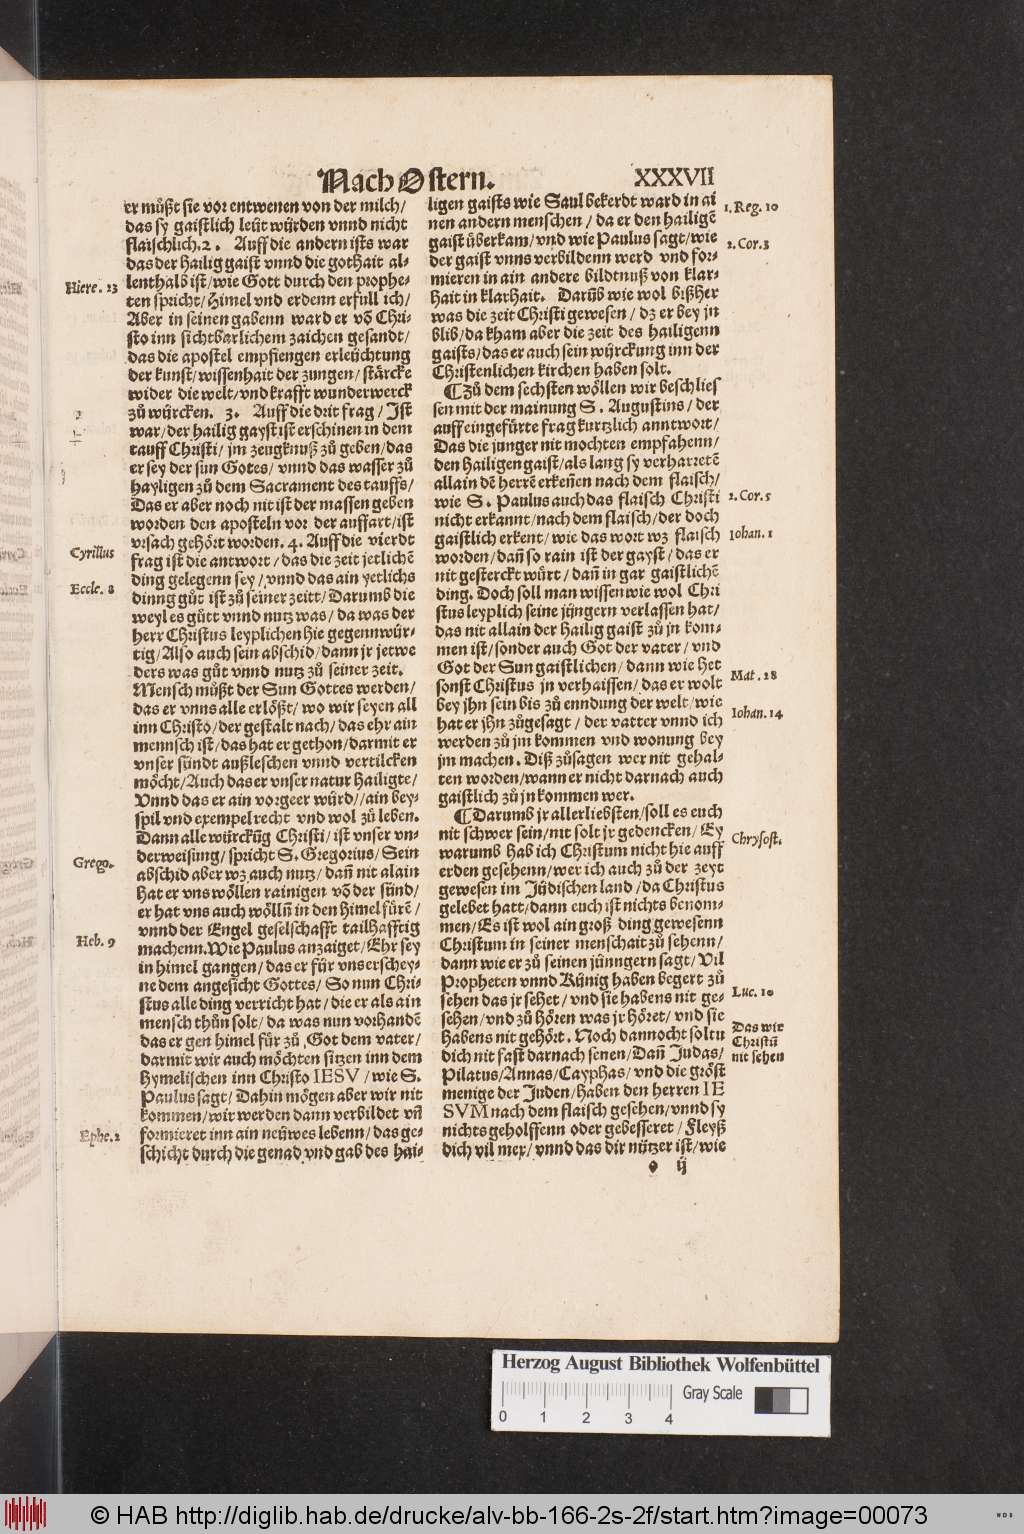 Nach Ostern. XXXVII
er můßt sie vor entwenen von der milch/
das sy gaistlich leüt würden vnnd nicht
flaischlich. 2. Auff die andern ists war
das der hailig gaist vnnd die gothait al-
lenthalb ist/wie Gott durch den prophe-
ten spricht/Himel vnd erdenn erfull ich/
Aber in seinen gabenn ward er võ Chri-
sto inn sichtbarlichem zaichen gesandt/
das die apostel empfiengen erleüchtung
der kunst/wissenhait der zungen/stärcke
wider die welt/vnd krafft wunderwerck
zů würcken. 3. Auff die drit frag/Ist
war/der hailig gayst ist erschinen in dem
tauff Christi/jm zeugknuß zů geben/das
er sey der sun Gotes/vnnd das wasser zů
hayligen zů dem Sacrament des tauffs/
Das er aber noch nit ist der massen geben
worden den aposteln vor der auffart/ist
vrsach gehört worden. 4. Auff die vierdt
frag ist die antwort/das die zeit jetlichẽ
ding gelegenn sey/vnnd das ain yetlichs
dinng gůt ist zů seiner zeitt/Darumb die
weyl es gůtt vnnd nutz was/da was der
herr Christus leyplichen hie gegennwür-
tig/Also auch sein abschid/dann jr jetwe
ders was gůt vnnd nutz zů seiner zeit.
Mensch můßt der Sun Gottes werden/
das er vnns alle erlößt/wo wir seyen all
inn Christo/der gestalt nach/das ehr ain
mennsch ist/das hat er gethon/darmit er
vnser sündt außleschen vnnd vertilcken
möcht/Auch das er vnser natur hailigte/
Vnnd das er ain vorgeer würd//ain bey-
spil vnd exempel recht vnd wol zů leben.
Dann alle würckũg Christi/ist vnser vn-
derweisung/spricht S. Gregorius/Sein
abschid aber wz auch nutz/dañ nit alain
hat er vns wöllen rainigen võ der sünd/
er hat vns auch wöllñ in den himel fürẽ/
vnnd der Engel geselschafft tailhafftig
machenn. Wie Paulus anzaiget/Ehr sey
in himel gangen/das er für vns erschey-
ne dem angesicht Gottes/So nun Chri-
stus alle ding verricht hat/die er als ain
mensch thůn solt/da was nun vorhandẽ
das er gen himel für zů Got dem vater/
darmit wir auch möchten sitzen inn dem
hymelischen inn Christo IESV/wie S.
Paulus sagt/Dahin mögen aber wir nit
kommen/wir werden dann verbildet vñ
formieret inn ain neüwes lebenn/das ge-
schicht durch die genad vnd gab des hai-
Hiere. 23
Cyrillus
Eccle. 8
Grego.
Heb. 9
Ephe. 2
ligen gaists wie Saul bekerdt ward in ai
nen andern menschen/da er den hailigẽ
gaist überkam/vnd wie Paulus sagt/wie
der gaist vnns verbildenn werd vnd for-
mieren in ain andere bildtnuß von klar-
hait in klarhait. Darũb wie wol bißher
was die zeit Christi gewesen/dz er bey jn
blib/da kham aber die zeit des hailigenn
gaists/das er auch sein würckung inn der
Christenlichen kirchen haben solt.
¶ Zů dem sechsten wöllen wir beschlies
sen mit der mainung S. Augustins/der
auff eingefürte frag kurtzlich anntwort/
Das die junger nit mochten empfahenn/
den Hailigen gaist/als lang sy verharretẽ
allain dẽ herrẽ erkeñen nach dem flaisch/
wie S. Paulus auch das flaisch Christi
nicht erkannt/nach dem flaisch/der doch
gaistlich erkent/wie das wort wz flaisch
worden/dañ so rain ist der gayst/das er
nit gesterckt würt/dañ in gar gaistlichẽ
ding. Doch soll man wissen wie wol Chri
stus leyplich seine jüngern verlassen hat/
das nit allain der hailig gaist zů jn kom-
men ist/sonder auch Got der vater/vnd
Got der Sun gaistlichen/dann wie het
sonst Christus jn verhaissen/das er wolt
bey jhn sein bis zů enndung der welt/wie
hat er jhn zůgesagt/der vatter vnnd ich
werden zů jm kommen vnd wonung bey
jm machen. Diß zůsagen wer nit gehal-
ten worden/wann er nicht darnach auch
gaistlich zů jn kommen wer.
¶ Darumb jr allerliebsten/soll es euch
nit schwer sein/nit solt jr gedencken/Ey
warumb hab ich Christum nicht hie auff
erden gesehenn/wer ich auch zů der zeyt
gewesen im Jüdischen land/da Christus
gelebet hatt/dann euch ist nichts benom-
men/Es ist wol ain groß ding gewesenn
Christum in seiner menschait zů sehenn/
dann wie er zů seinen jünngern sagt/Vil
Propheten vnnd Künig haben begert zů
sehen das jr sehet/vnd sie habens nit ge-
sehen/vnd zů hören was jr höret/vnd sie
habens nit gehört. Noch dannocht soltu
dich nit fast darnach senen/Dañ Judas/
Pilatus/Annas/Cayphas/vnd die gröst
menige der Juden/haben den herren IE
SVM nach dem flaisch gesehen/vnnd sy
nichts geholffenn oder gebesseret/Fleyß
dich vil mer/vnnd das dir nützer ist/wie
1. Reg. 10
2. Cor. 3
2. Cor. 5
Iohan. 1
Mat. 28
Iohan. 14
Chrysost.
Luc. 10
Das wir
Christũ
nit sehen
o ij
Herzog August Bibliothek Wolfenbüttel
Gray Scale
0 1 2 3 4
© HAB http://diglib.hab.de/drucke/alv-bb-166-2s-2f/start.htm?image=00073